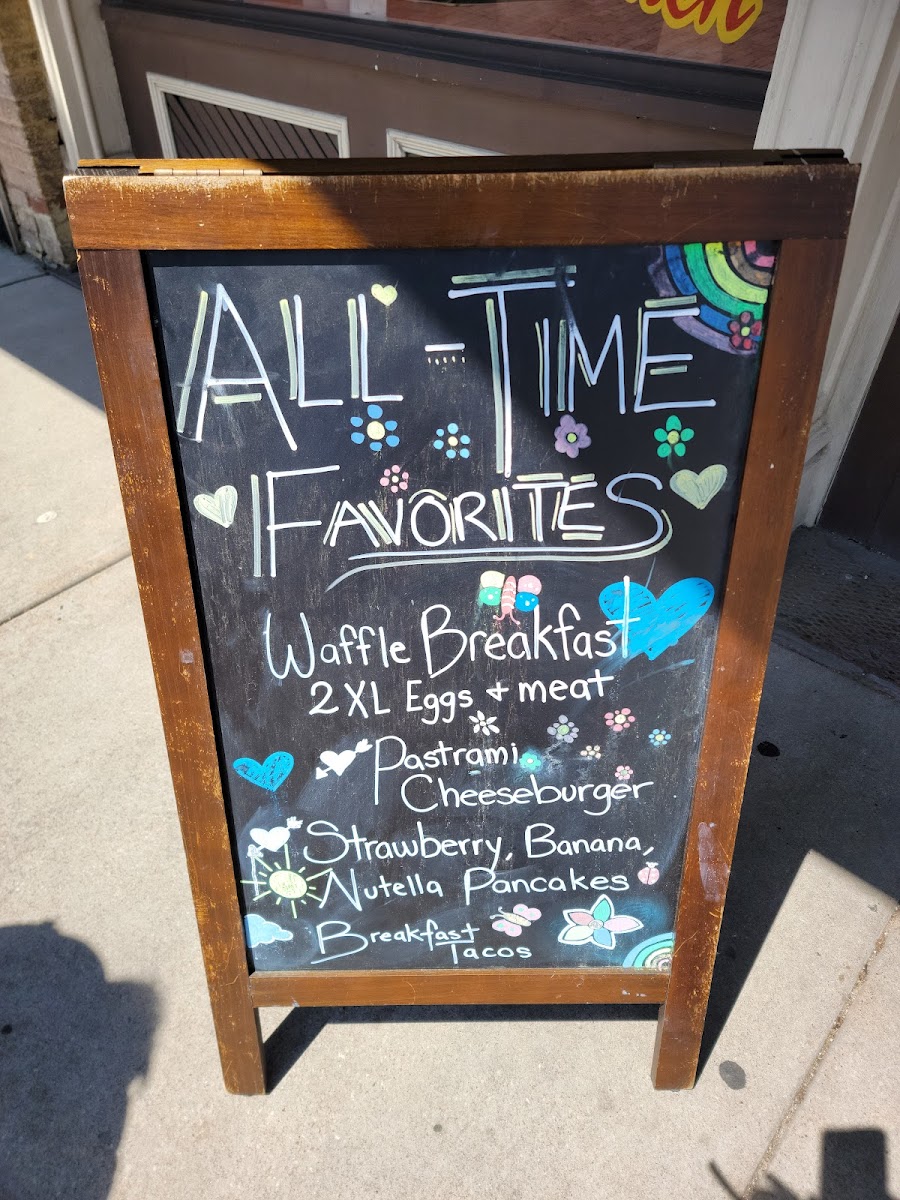 ALL-TIME
FAVORITES
Waffle Breakfast
2 XL Eggs + meat
Pastrami
Cheeseburger
Strawberry, Banana,
Nutella Pancakes
Breakfast
Tacos